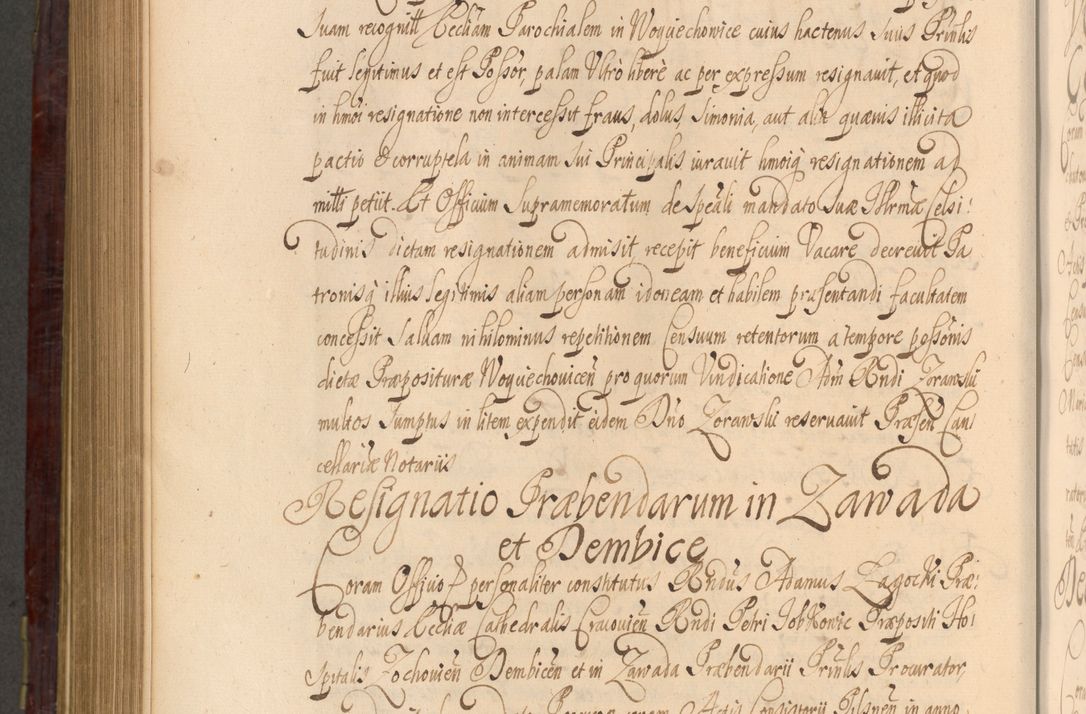 suam recognitt Eccliam Parochialem in Woyciechowice cuius hactenus suus Prinlis
fuit legitimus et est Possor, palam Ultro libere ac per expressum resignavit, et quod
in hmoi resignatione non intercessit fraus, dolus, simonia, aut alia quaevis illicita
pactio & corruptela in animam sui Principalis iuravit hmoiq resignationem ad
mitti petiit. Et Officium supramemoratum de speāli mandato suæ Illrmæ Celsi:
tudinis dictam resignationem admisit, recepit beneficium Vacare decrevit Pa
tronisq illius legitimis aliam personam idoneam et habilem præsentandi facultatem
concessit salvam nihilominus repetitionem Censuum retentorum a tempore possōnis
dictæ Præposituræ Woyciechovicen̄ pro quorum Vindicatione Adm Rndi Zoranski
multos sumptus in litem expendit eidem Dn̄o Zoranski reservavit Præsen̄ Can:
cellariæ Notariis
Resignatio Præbendarum in Zawada
et Dembice
Coram Officio & personaliter constitutus Rndus Adamus Zagocki Præ:
bendarius Eccliæ Cathedralis Cracovien̄ Rndi Petri Jobkowic Præpositi Ho:
spitalis Zochovien̄ Dembicen̄ et in Zawada Præbendarii Prinlis Procurator,
Actis Consistorii Pilsnen̄ in anno